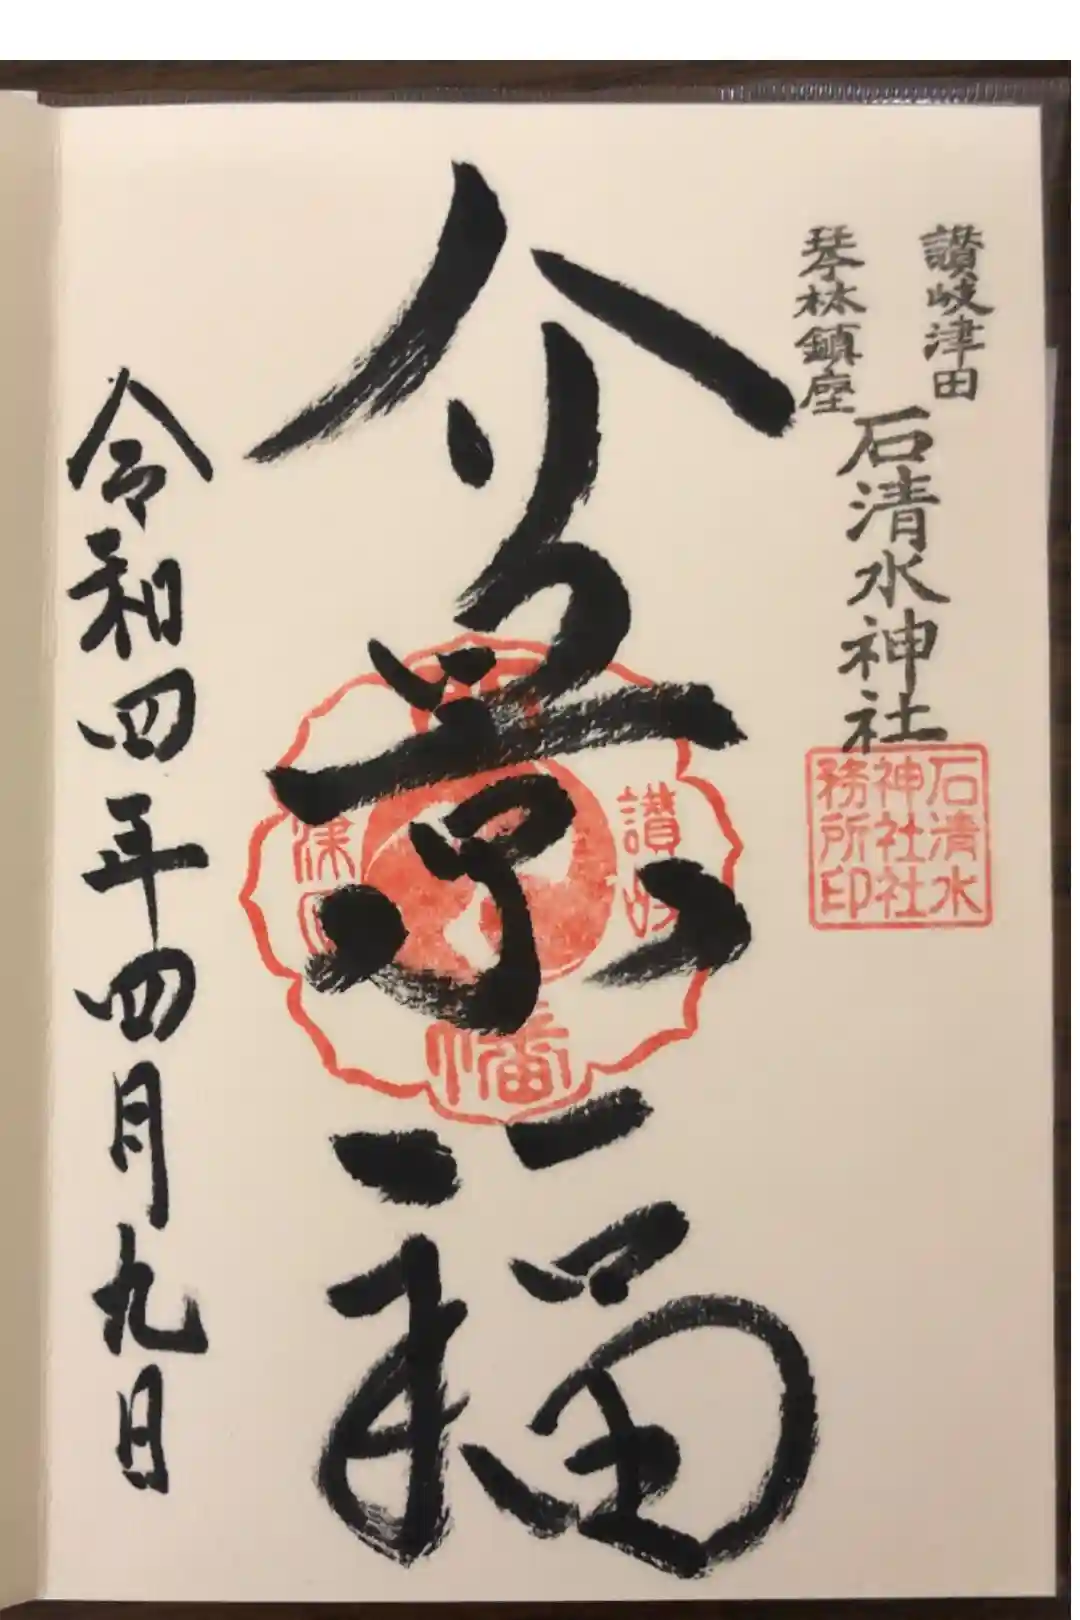 讚岐津田
琴林鎮座
石清水神社
石清水
神社社
務所印
介景福
讚岐
幡
津田
令和四年四月九日